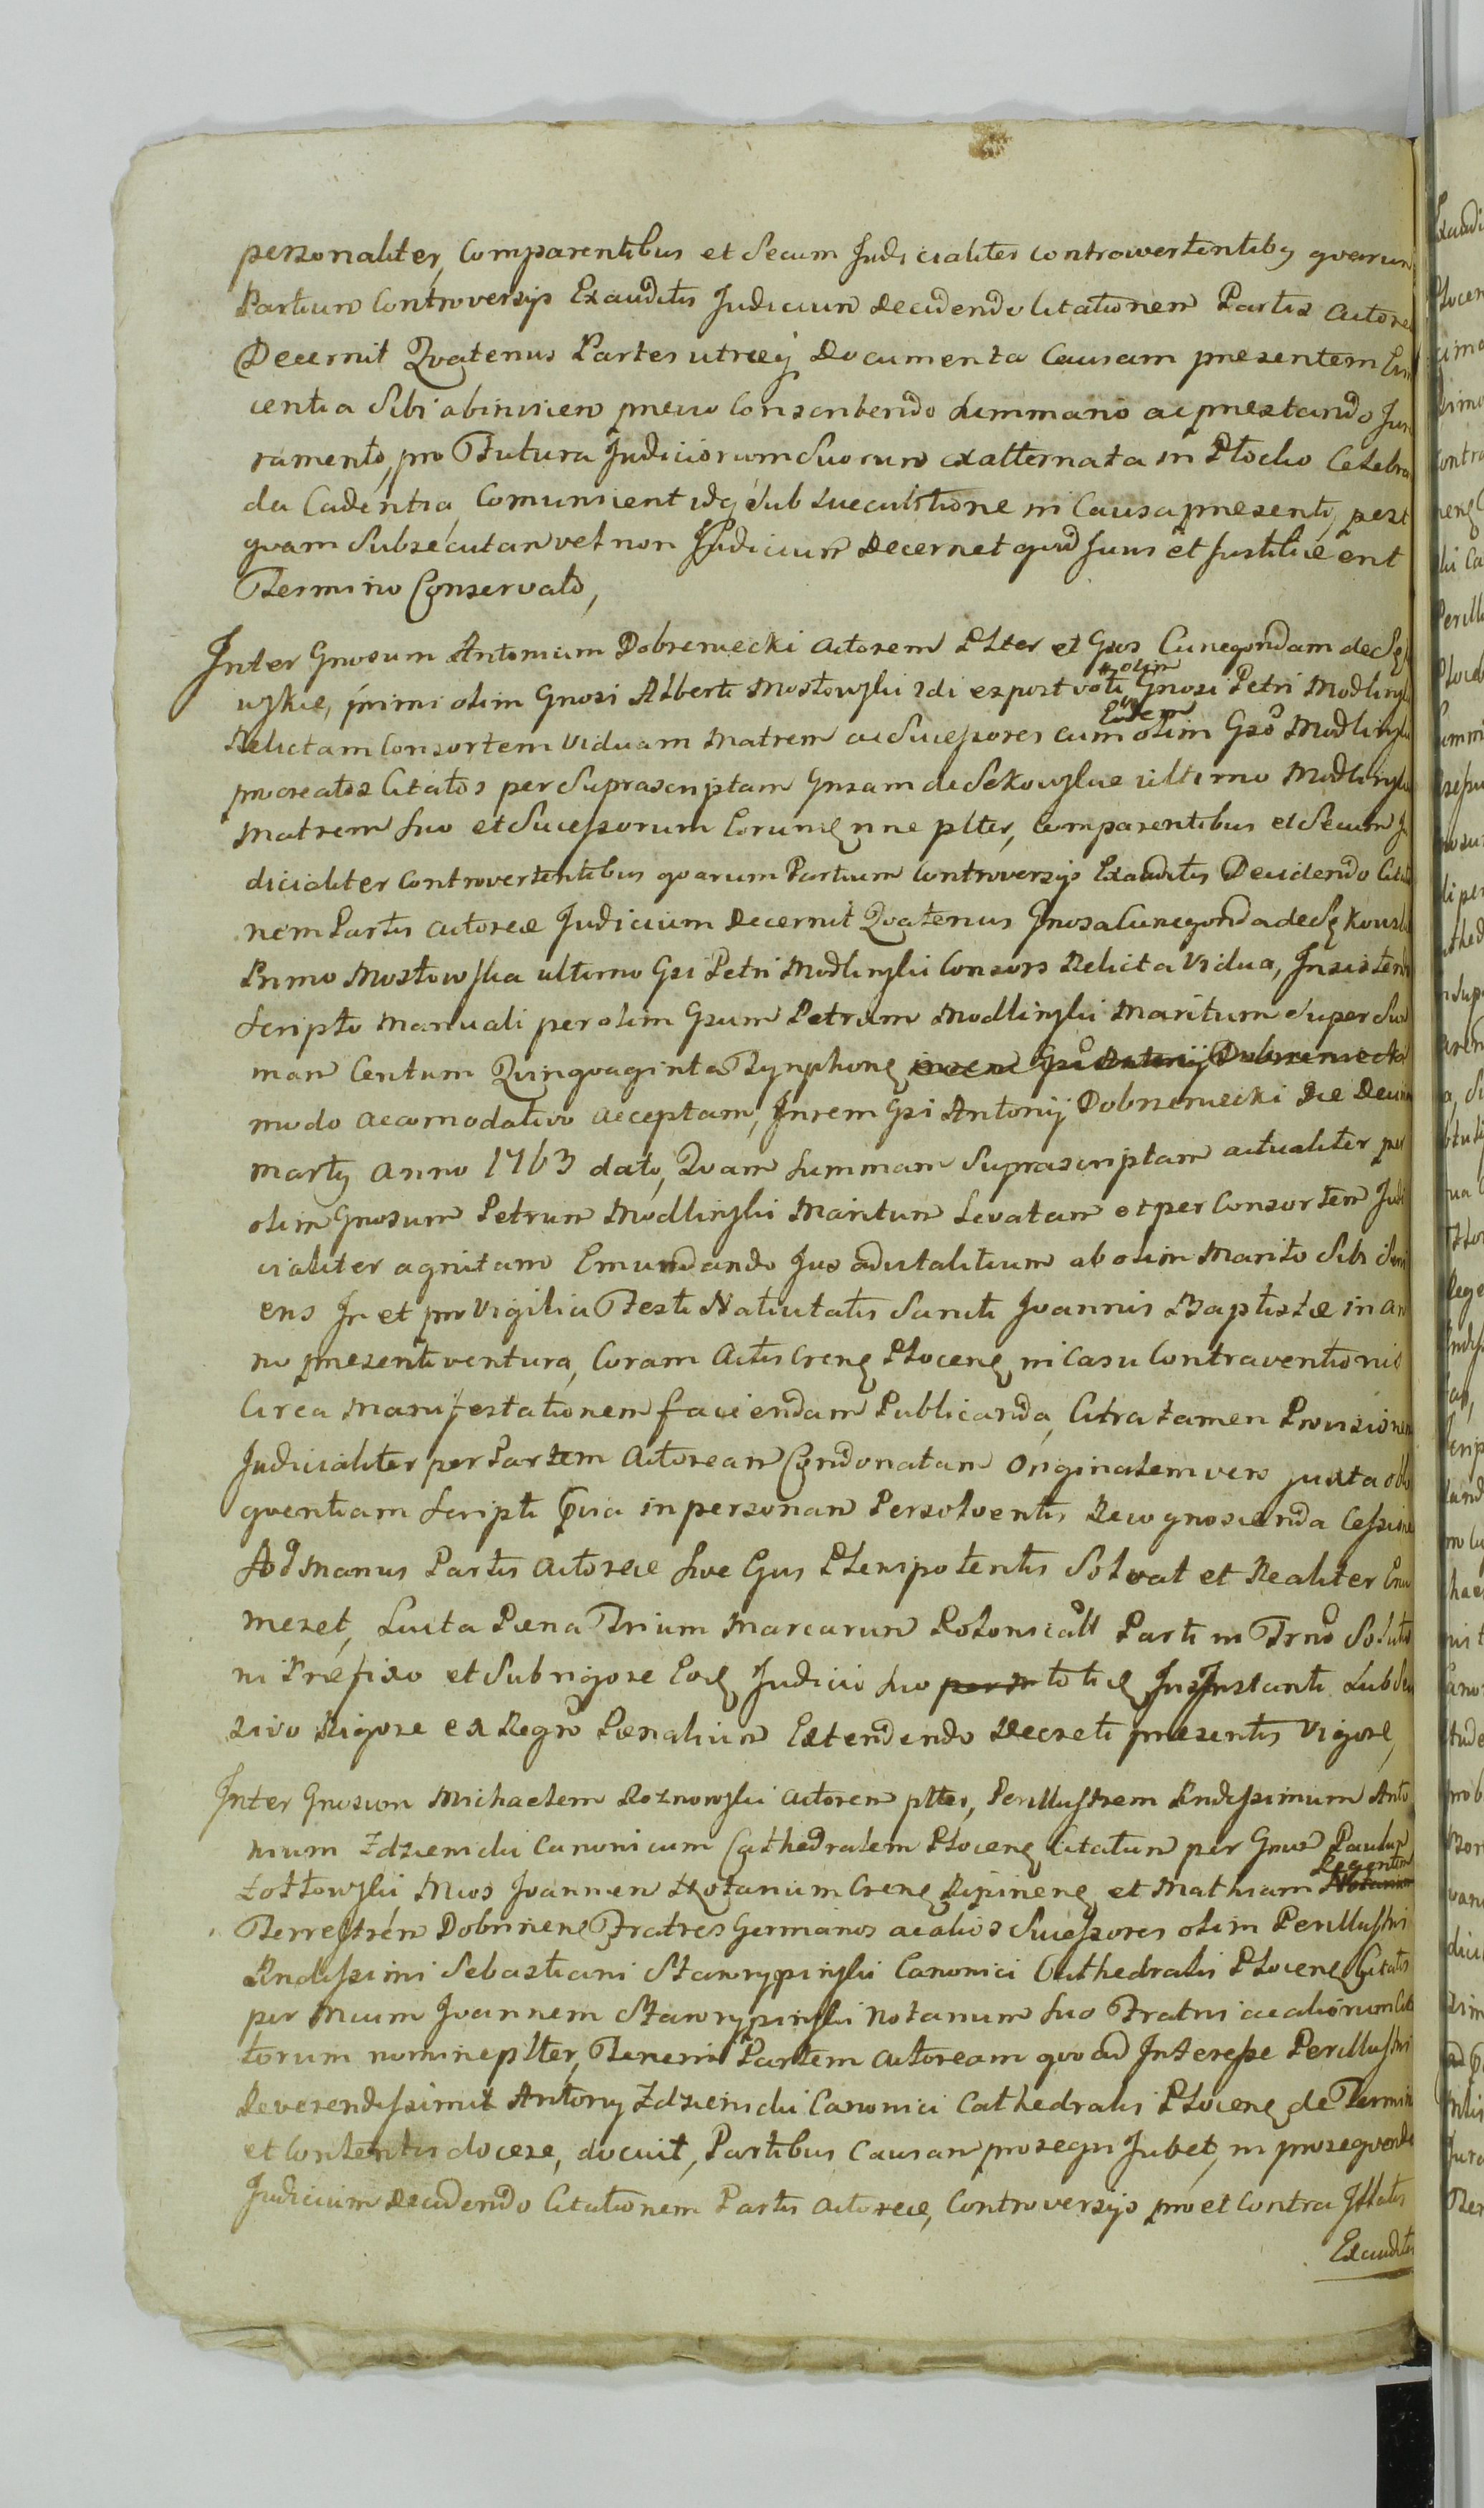 personaliter, Comparentibus et Secum Judicialiter controwertentibq qvarum
Partium Controversijs Exauditis Judicium decidendo Citationem Partis Actore
Decernit Qvatenus Partes utraeq Documenta Causam presentem
centia Sibi abinvicem previo Conscribendo Summario ac prestando Ju
ramento, pro Futura Judiciorum Suorum exalternata in Plocko Celebra
da Cadentia, Comunicent idq sub luecubitione in Causa presenti, post
qvam Subsecutam vel non Judicium Decernet qvid Juris et Justitiae erit
Termino Conservato,
Inter Gnosum Antonium Dobrzeniecki Actorem Plter et Gsos Cunegondam de
wskie, primi olim Gnosi Alberti Mostowski 2di expost voti olim Gnosi Petri Modlinsk
Relictam Consortem Viduam Matrem ac Sucessores cum Eodem olim Gso Modlinski
procreatos Citatos per Suprascriptam Gnsam de Sekowskie ultimo Modlinska
Matrem Suo et Sucessorum Eorumq nne plter, Comparentibus et Secum Ju
dicialiter Controvertentibus qvarum Partium Controversijs Exauditis Decidendo Citatio
nem Partis Actoreae Judicium decernit Qvatenus Gnosa Cunegonda de Sękowsk
Primo Mostowska ultimo Gsi Petri Modlinski Consors Relicta Vidua, Insistendo
Scripto Manuali per olim Gsum Petrum Modlinski Maritum Super Sum
mam Centum Qvinqvaginta Tynphonq in rem Gsi Antonij Dobrzeniecki
modo accomodativo acceptam, In rem Gsi Antonij Dobrzeniecki Die Decim
Martij Anno 1763 dato, Qvam Summam Suprascriptam actualiter per
olim Gnosum Petrum Modlinski Maritum Levatam et per Consortem Judi
cialiter agnitam Emundando Jus advitalitium ab olim Marito Sibi Serui
ens In et pro Vigilia Festi Nativitatis Sancti Joannis Baptistae in an
no presenti ventura, Coram Actis Crenq Plocenq in Casu Contraventionis
Circa Manifestationem faciendam Publicanda, Citra tamen Provisionem
Judicialiter per Partem Actoream Condonatam Originalem vero juxta obl
qventiam Scripti Qvia in personam Persolventis Recognoscenda Cessione
Ad Manus Partis Actoreae Sive Ejus Plenipotentis Solvat et Realiter Enu
meret, Lucta Paena Trium Marcarum Polonicall Parti in Trno Soluto
ni Praefixo et Sub rigore Eodq Judicio Suo per n totiq Jus Instanti Lub Suc
sivo Rigore ex Regro Paenalium Extendendo Decreti presentis Vigore,
Inter Gnosum Michaelem Roznowski Actorem plter, Perillustrem Rndissimum Anto
nium Zdzienicki Canonicum Cathedralem Plocenq Citatum per Gnos Paulum
Zottowski Mcos Joannem Notarium Crenq Ripinenq et Mathiam Notarium Regentem
Terrestrem Dobrinens Fratres Germanos ac alios Sucessores olim Perillustris
Rndissimi Sebastiani Stanrypinski Canonici Cathedralis Plocenq Citatis
per Mcum Joannem Stanrypinski Notarium Suo Fratris ac aliorum Cita
torum nomine plter, Teneri Partem Actoream qvo ad Interesse Perillustris
Reverendissimi Antonij Zdzienicki Canonici Cathedralis Plocenq de Termino
et Contentis docere, docuit, Partibus Causam prosegvi Jubet, in prosegvendo
Judicium Decidendo Citationem Partis Actoreae, Controversijs pro et Contra Illatis
Exauditis